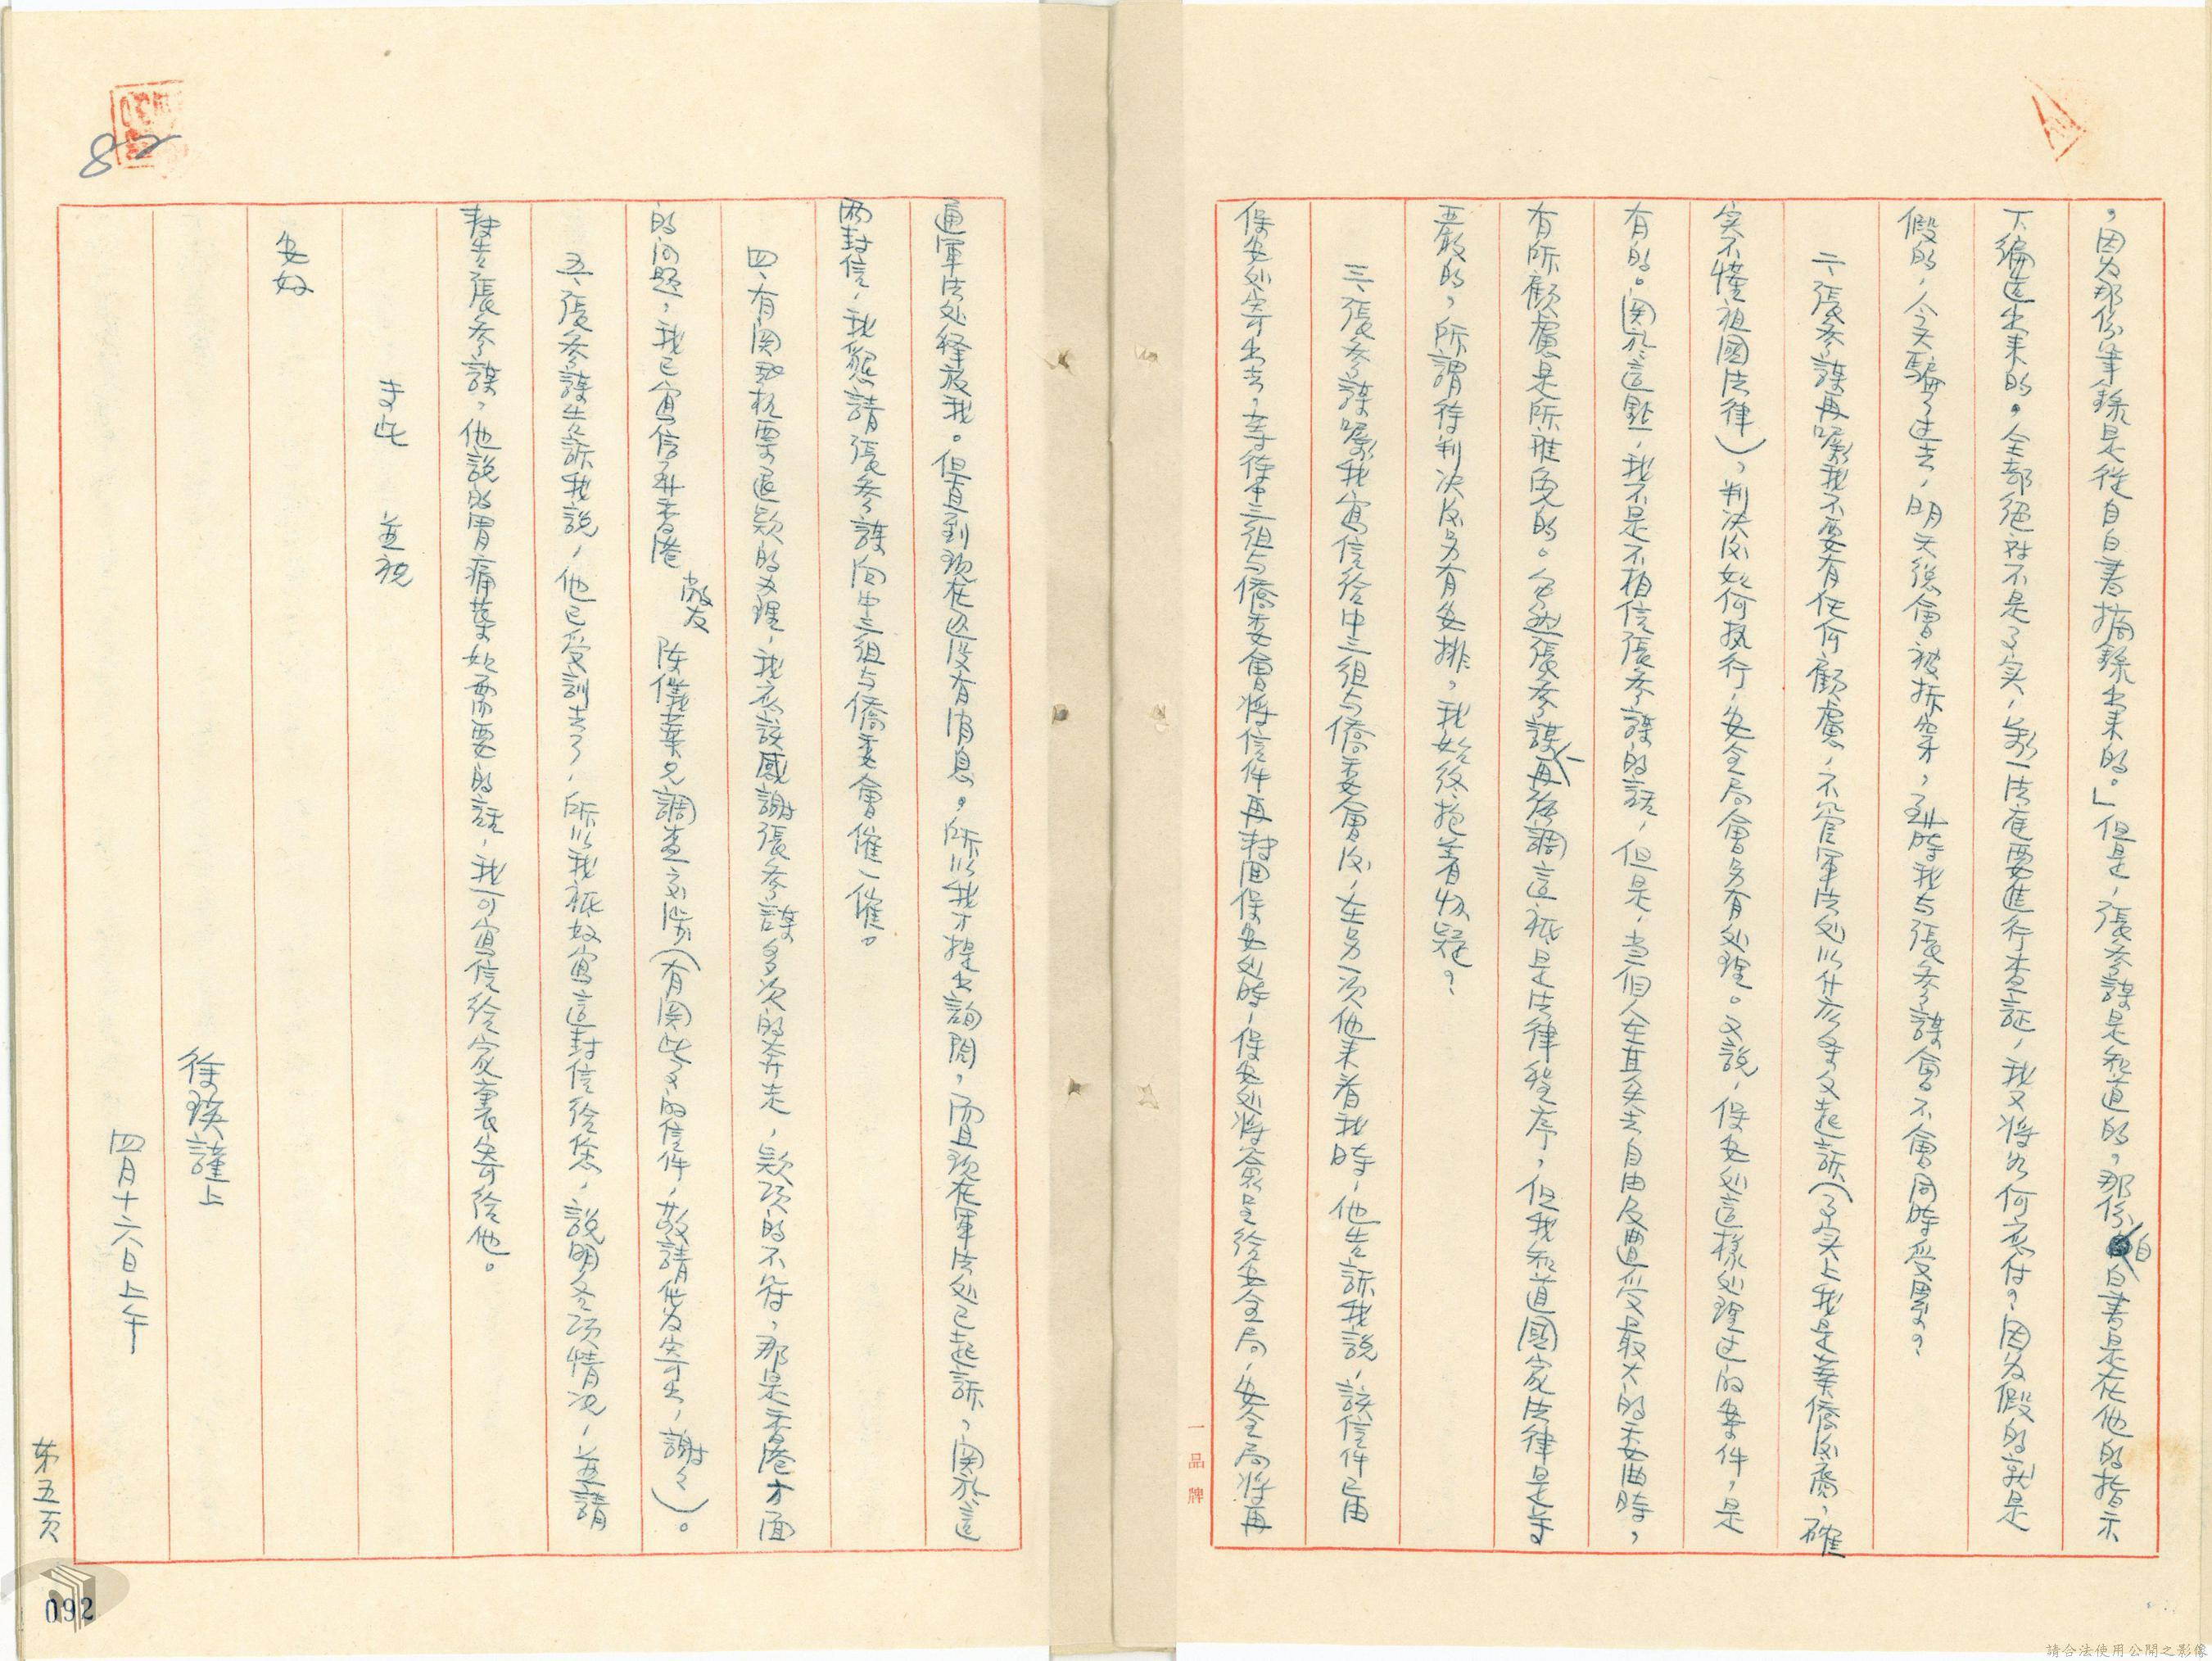 ，因为那份筆錄是從自白書摘錄出来的。」但是，張参謀是知道的，那份自白書是在他的指示
下編造出来的。全部绝对不是事实，萬一法庭要進行查証，我又將如何应付？因为假的就是
假的，今天騙了过去，明天總會被拆穿，到時我与張参謀會不會同時受累？
二、張参謀再囑我不要有任何顧慮，不管軍法处以什麽条文起訴（事实上我是華僑後裔，確
实不懂祖國法律），判决後如何执行，安全局會另有处理。又說，保安处這樣处理过的案件，是
有的。関於這點，我不是不相信張参謀的話，但是，当個人在其失去自由及遭受最大的委曲時，
有所顧慮是所难免的。張参謀再强調這祗是法律程序，但我知道國家法律是
严厳的，所謂待判决後另有安排，我始終抱着怀疑？
三、張参謀囑我寫信給中三组与僑委會後，在另一次他来看我時，他告訴我說，該信件已由
保安处寄出去，等待中三组与僑委會將信件再封回保安处時，保安处將會呈給安全局，安全局將再
通軍法处釋放我。但直到现在还没有消息，所以我才提出詢問，而且现在軍法处已起訴，関於這
兩封信，我懇請張参謀向中三组与僑委會催一催。
四、有関那机票退款的办理，我应該感謝張参謀多次的奔走，款項的不符，那是香港方面
的问题，我已寫信到香港敝友陈儀葉兄調查（有関此文的信件，敬請代为寄出，謝々）。
五、張参謀告訴我說，他已受訓去了，所以我祇好寫這封信給您，說明各項情况，並請
轉告張参謀，他說的胃痛葯如需要的話，我可寫信給家裏寄給他。
专此　並祝
安好
徐瑛謹上
四月十六日上午
第五页
82
092
一品牌
請合法使用公開之影像